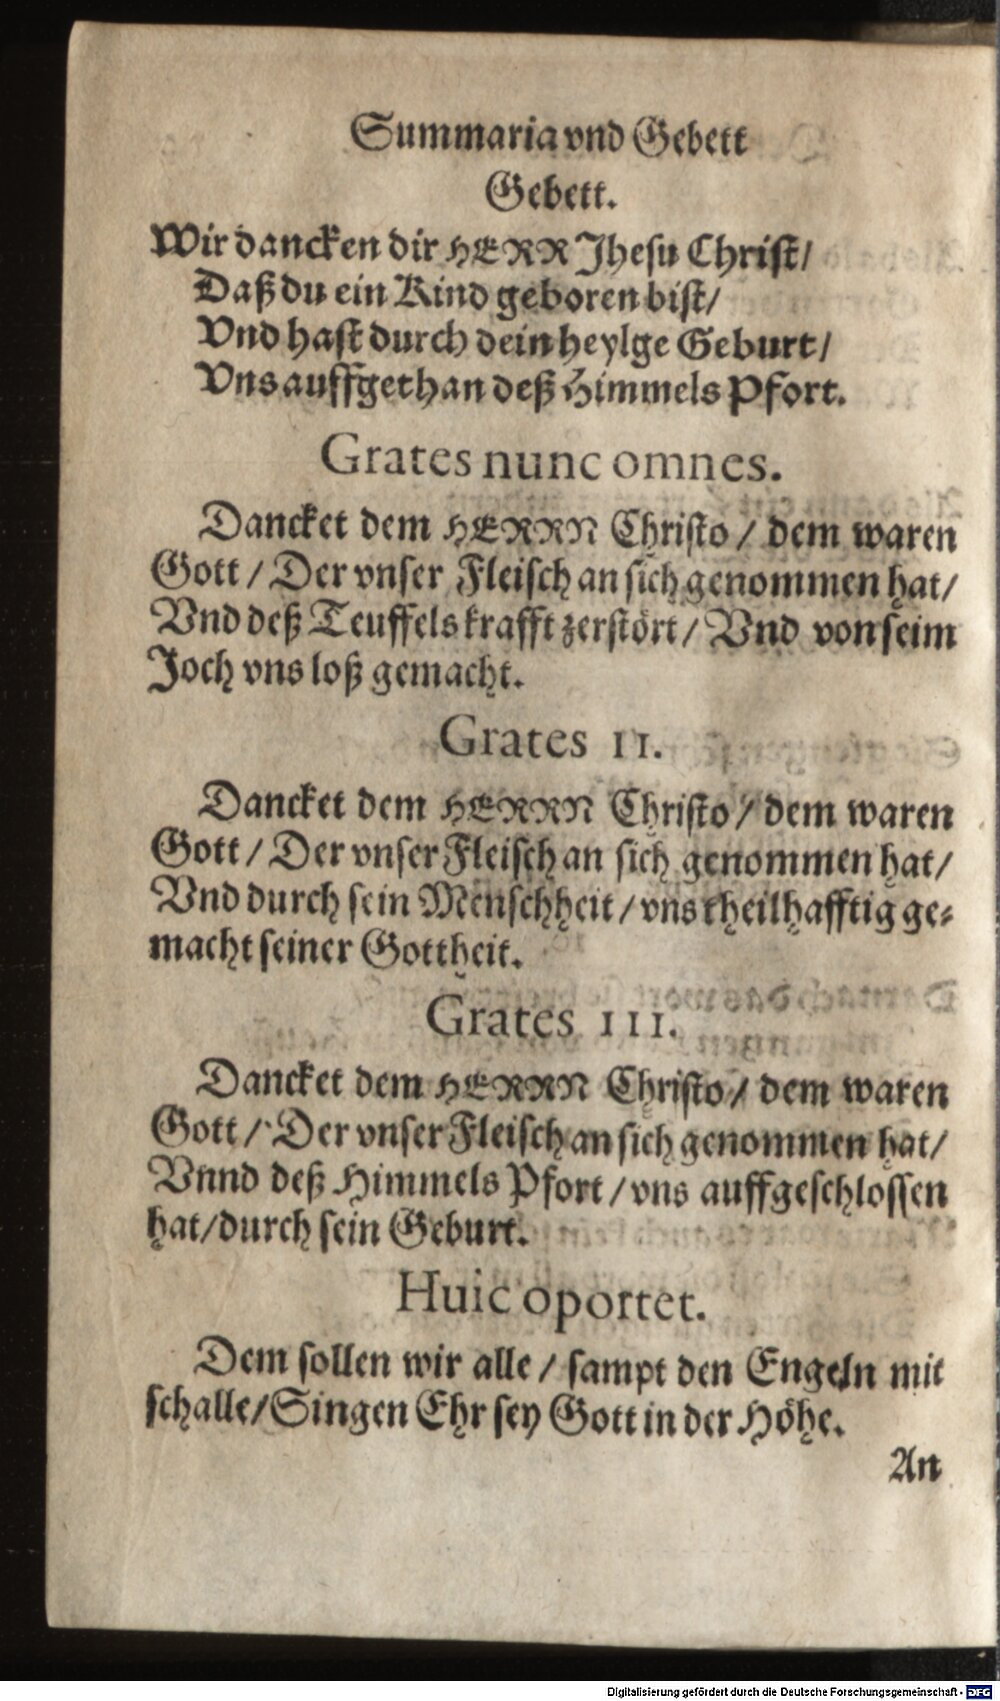 Summaria vnd Gebett
Gebett.
Wir dancken dir HERR Jhesu Christ/
Daß du ein Kind geboren bist/
Vnd hast durch dein heylge Geburt/
Vns auffgethan deß Himmels Pfort.
Grates nunc omnes.
Dancket dem HERRN Christo / dem waren
Gott / Der vnser Fleisch an sich genommen hat/
Vnd deß Teuffels krafft zerstört / Vnd von seim
Joch vns loß gemacht.
Grates II.
Dancket dem HERRN Christo / dem waren
Gott / Der vnser Fleisch an sich genommen hat/
Vnd durch sein Menschheit / vns theilhafftig ge⸗
macht seiner Gottheit.
Grates III.
Dancket dem HERRN Christo / dem waren
Gott / Der vnser Fleisch an sich genommen hat/
Vnnd deß Himmels Pfort / vns auffgeschlossen
hat/durch sein Geburt.
Huic oportet.
Dem sollen wir alle / sampt den Engeln mit
schalle/Singen Ehr sey Gott in der Höhe.
An
Digitalisierung gefördert durch die Deutsche Forschungsgemeinschaft - DFG